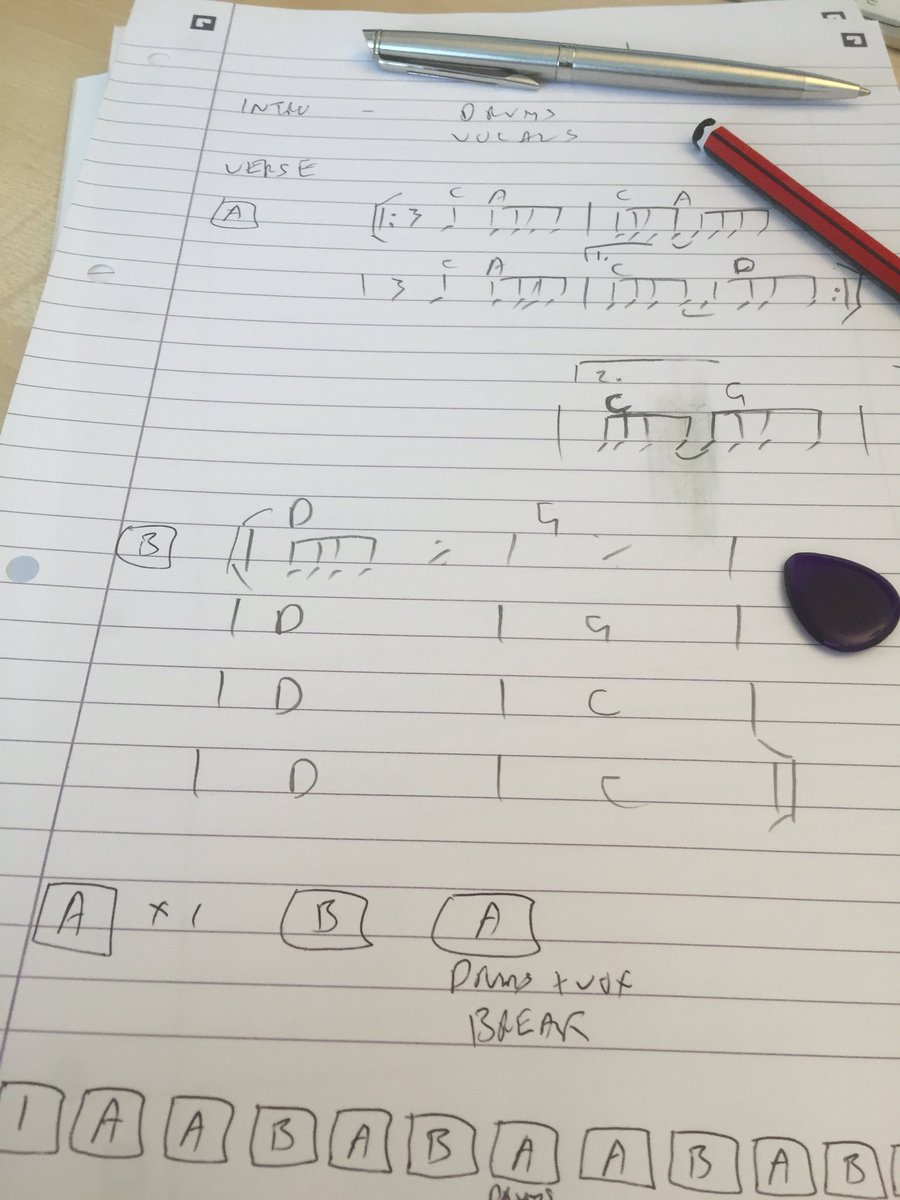 INTRO - DRUMS
VOCALS
VERSE
A
C A C A
1.
C A C D
2.
C G
B D G
D G
D C
D C
A x 1 B A
DRUMS + VOX
BREAK
1 A A B A B A A B A B
DRUMS